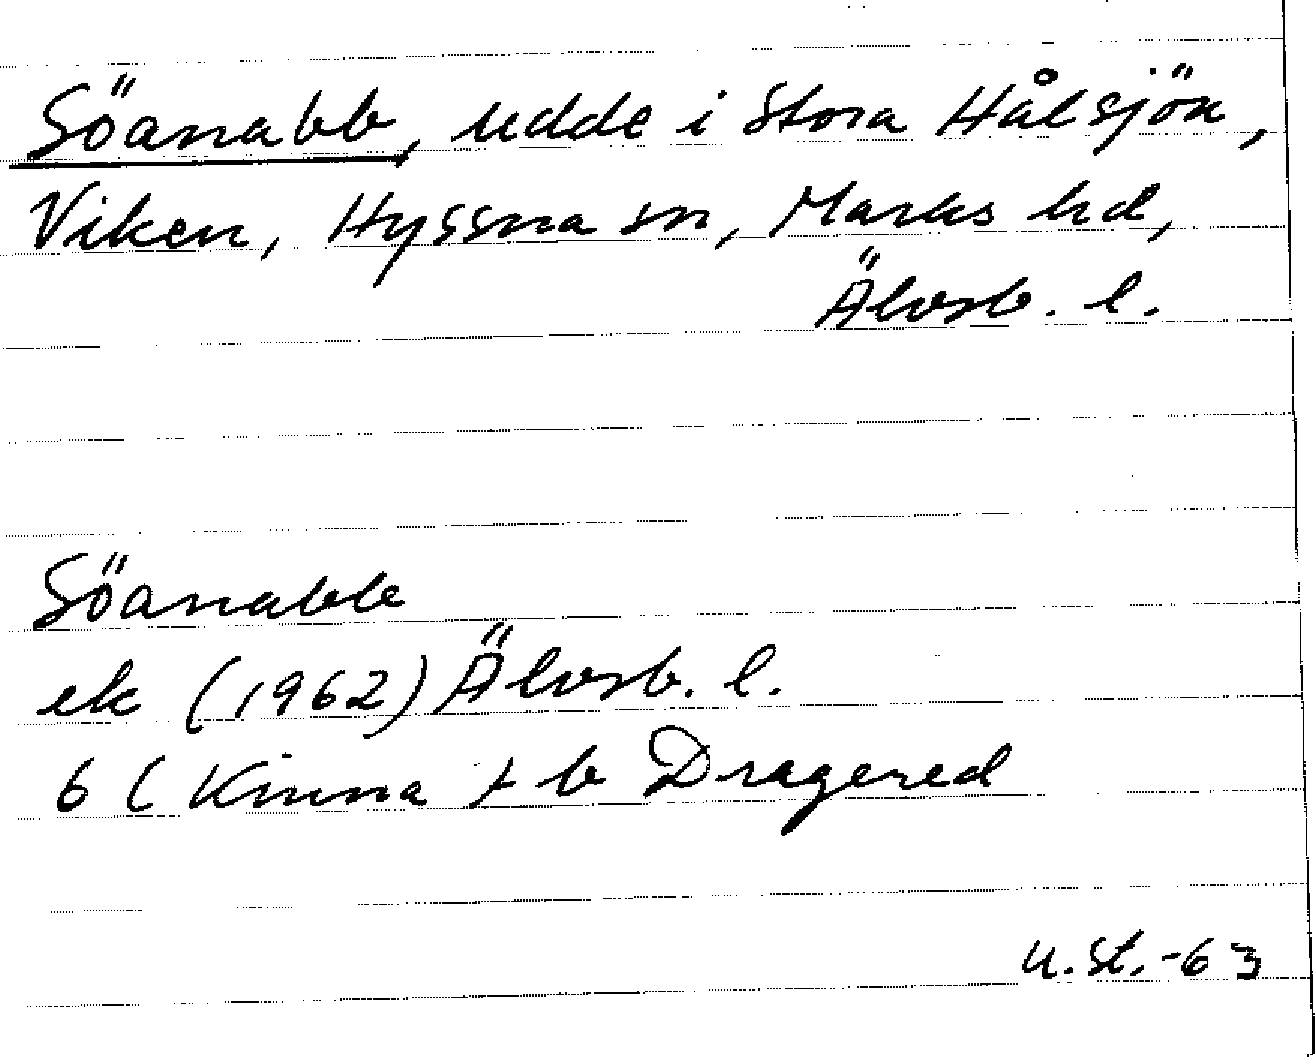 Söanabb, udde i Stora Hålsjön,
Viken, Hyssna sn, Marks hd,
Älvsb. l.
Söanabb
ek (1962) Älvsb. l.
6 ( Kinna + b Dragered
U. St. -63